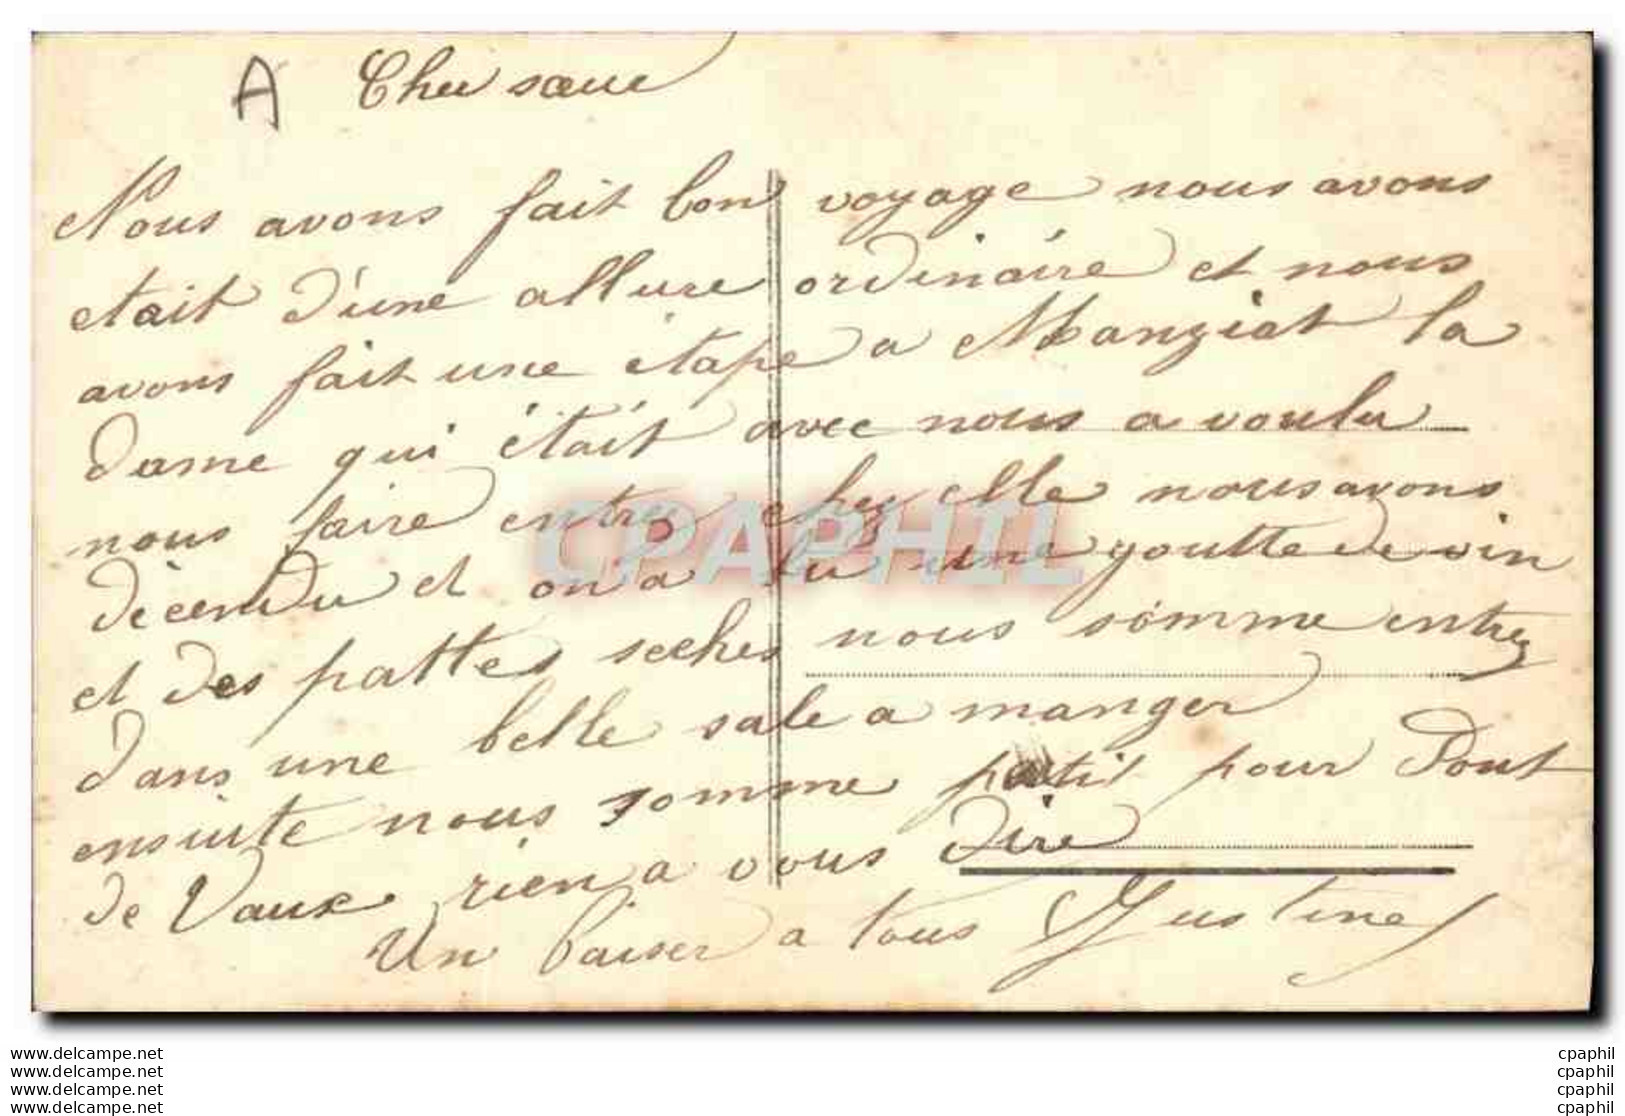 A Cher sœur
Nous avons fait bon voyage nous avons
etait d'une allure ordináire et nous
avons fait une étape a Manziat la
dame qui était avec nous a voulu
nous faire entrez chez elle nous avons
décendu et on a bu une goutte de vin
et des pattes seches nous somme entrez
dans une belle sale a manger
ensuite nous somme patit pour Pont
de Vaux rien a vous dire
Un baiser a tous Justine
CPAPHIL
www.delcampe.net
www.delcampe.net
www.delcampe.net
www.delcampe.net
cpaphil
cpaphil
cpaphil
cpaphil